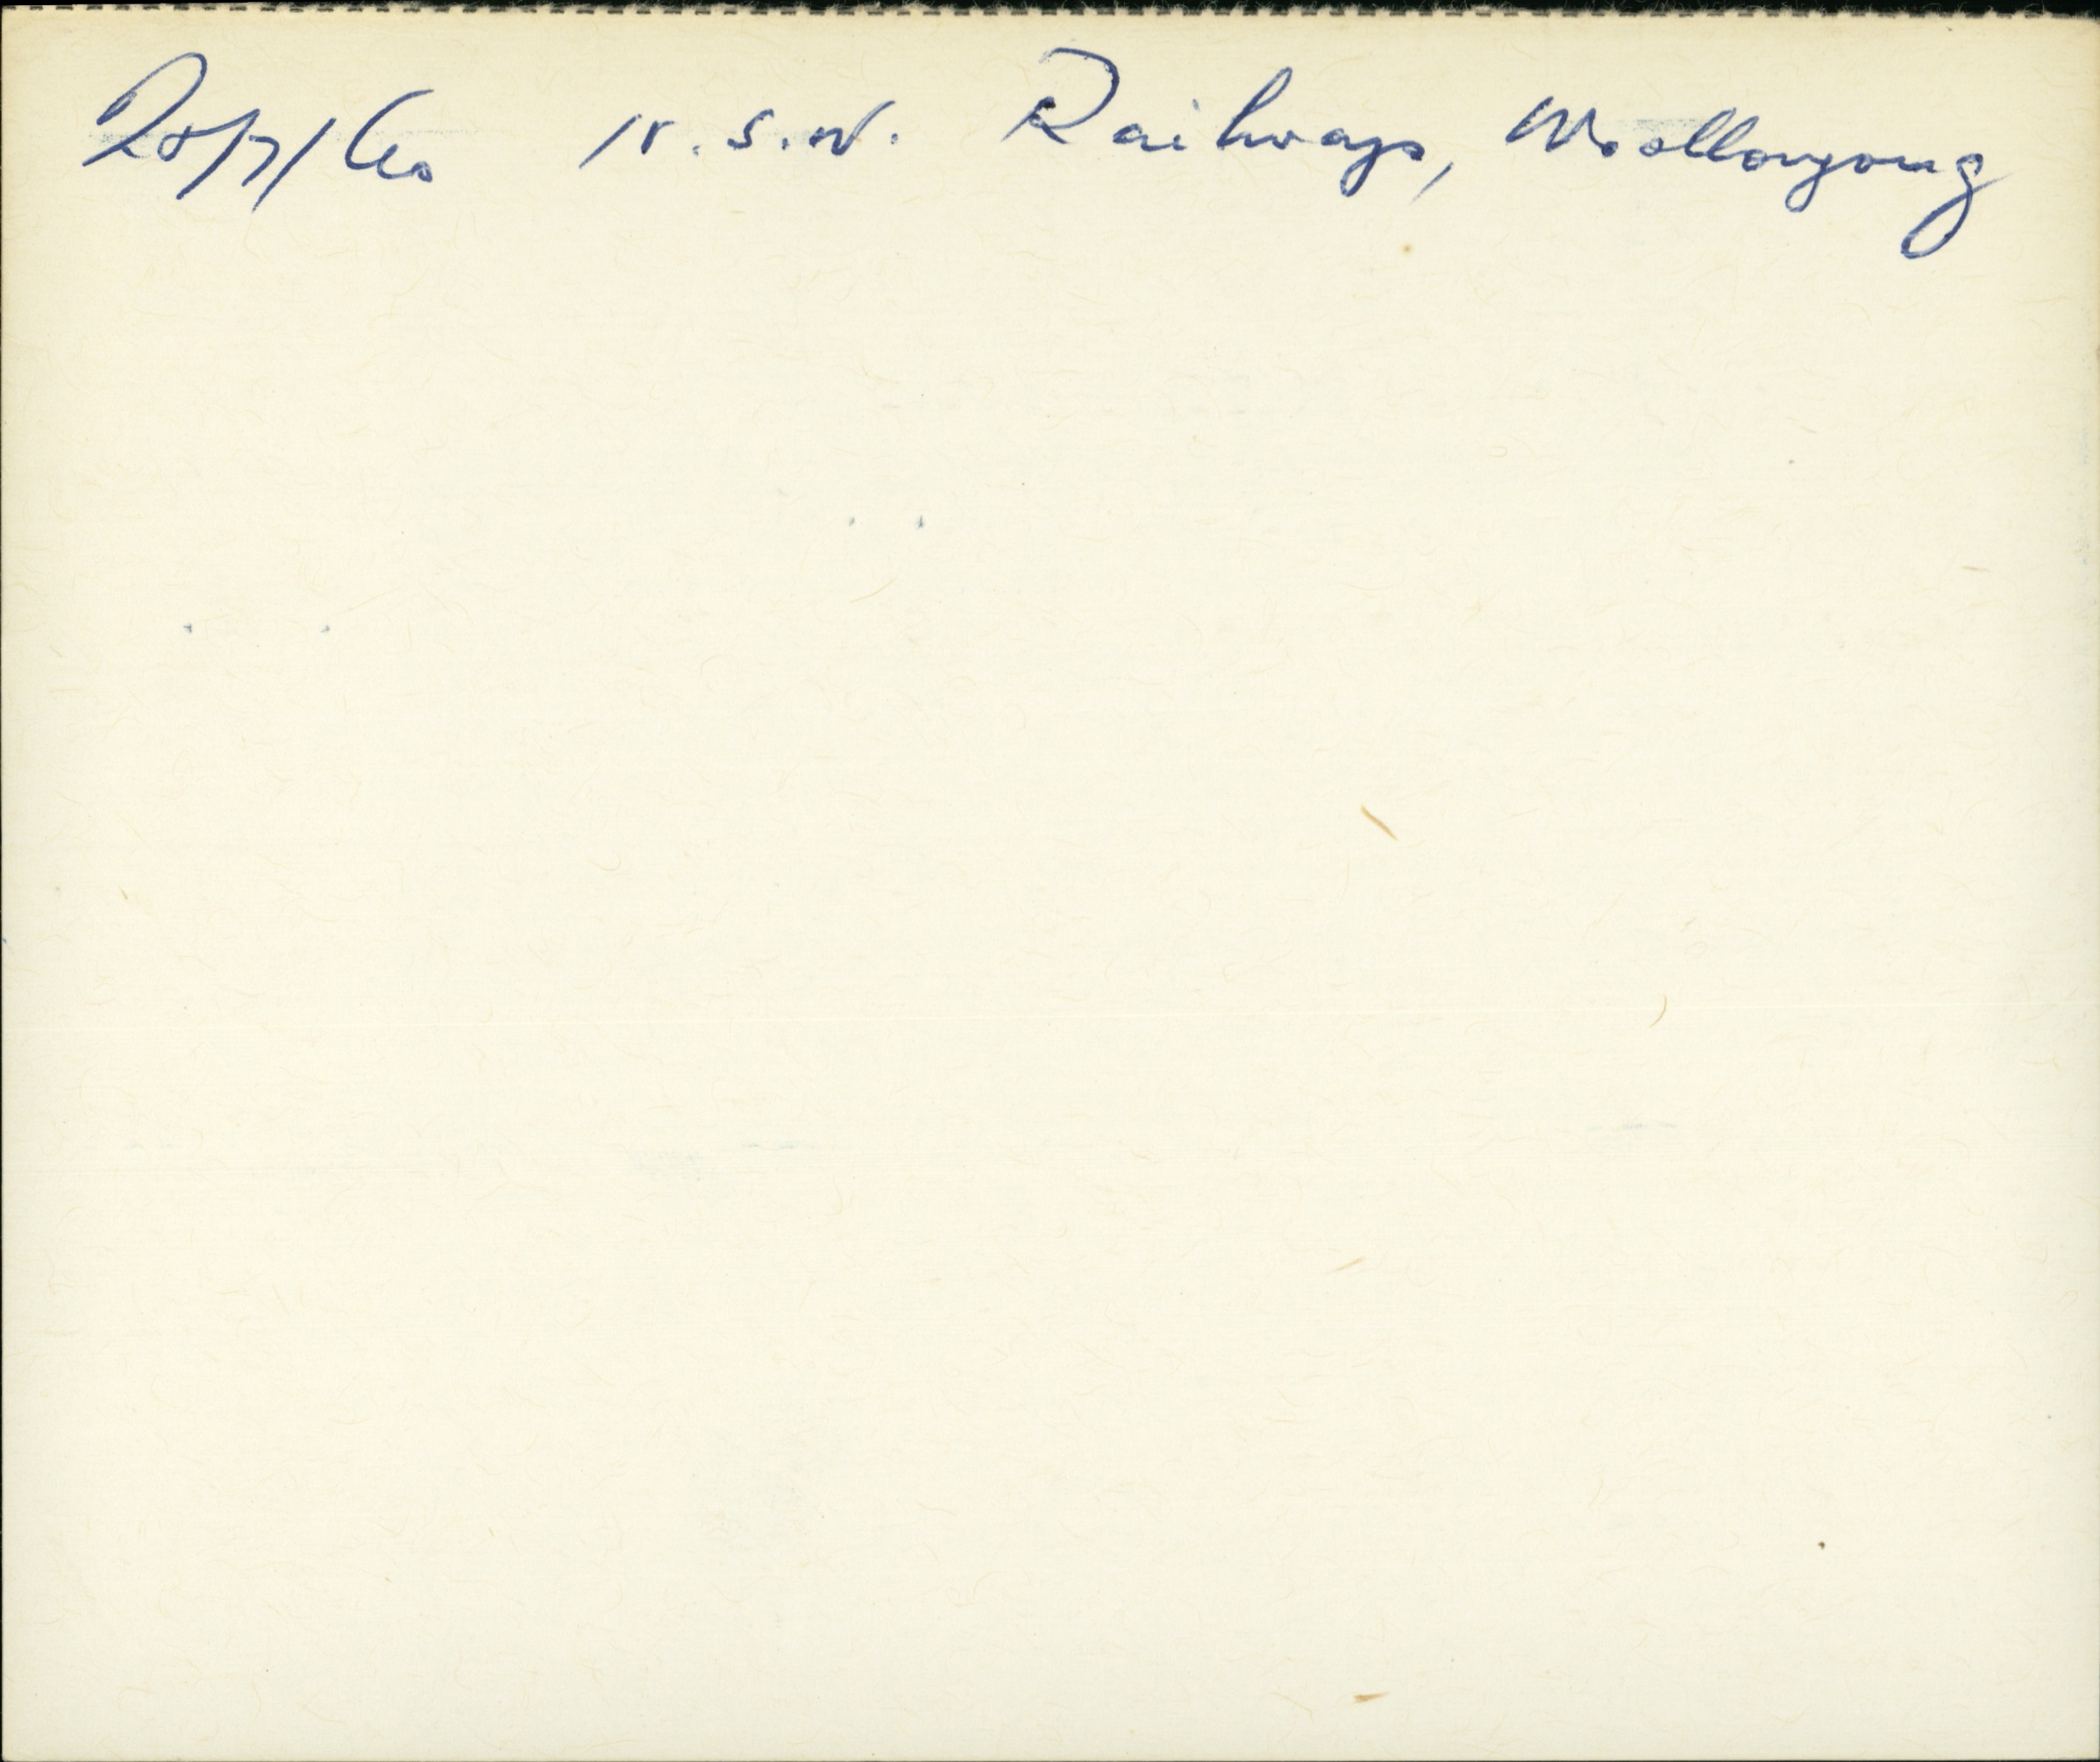 28/7/60 N.S.W. Railways, Woollongong